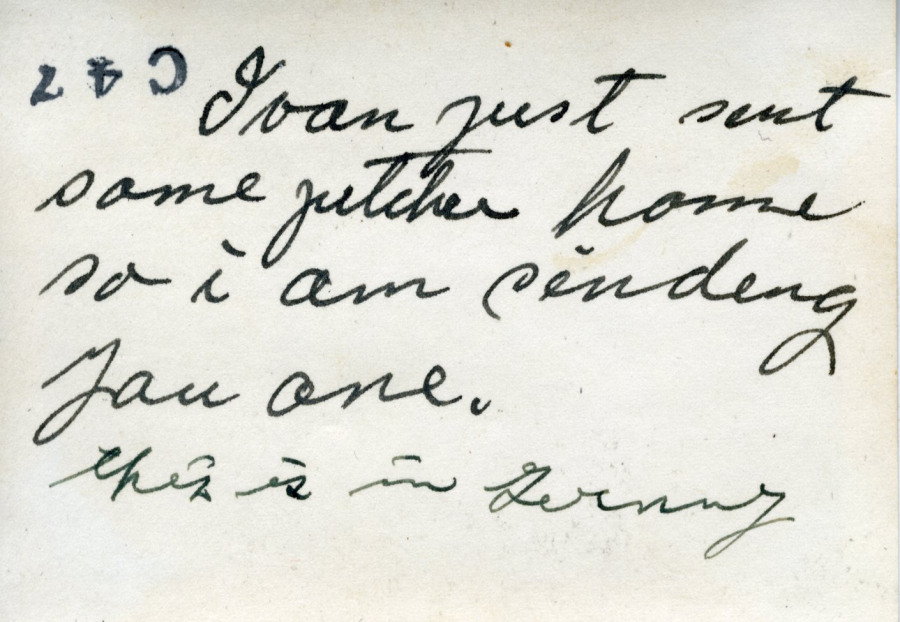 Ivan just sent
some pitcher home
so i am sending
you one.
this is in Germny